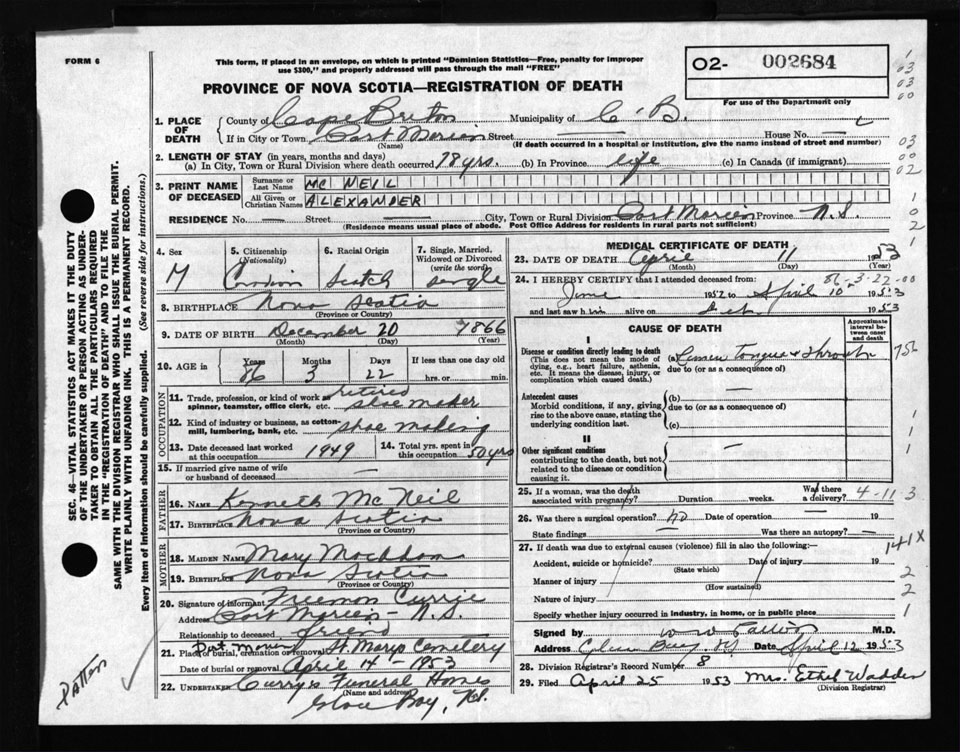 FORM 6
This form, if placed in an envelope, on which is printed "Dominion Statistics—Free, penalty for improper
use $300," and properly addressed will pass through the mail "FREE"
O2- 002684
PROVINCE OF NOVA SCOTIA—REGISTRATION OF DEATH
For use of the Department only
1. PLACE OF DEATH
County of Cape Breton Municipality of C.B.
If in City or Town Port Morien Street — House No.
(Name) (If death occurred in a hospital or institution, give the name instead of street and number)
2. LENGTH OF STAY (in years, months and days)
(a) In City, Town or Rural Division where death occurred 78 yrs. (b) In Province life (c) In Canada (if immigrant)
3. PRINT NAME OF DECEASED
Surname or Last Name MC NEIL
All Given or Christian Names ALEXANDER
RESIDENCE No. — Street — City, Town or Rural Division Port Morien Province N.S.
(Residence means usual place of abode. Post Office Address for residents in rural parts not sufficient)
4. Sex M
5. Citizenship (Nationality) Canadian
6. Racial Origin Scotch
7. Single, Married, Widowed or Divorced (write the word) single
8. BIRTHPLACE Nova Scotia
(Province or Country)
9. DATE OF BIRTH December 20 1866
(Month) (Day)
10. AGE in Years 86 Months 3 Days 22 If less than one day old hrs. or min.
OCCUPATION
11. Trade, profession, or kind of work as spinner, teamster, office clerk, etc. retired shoe maker
12. Kind of industry or business, as cotton-mill, lumbering, bank, etc. shoe making
13. Date deceased last worked at this occupation 1949
14. Total yrs. spent in this occupation 50 yrs
15. If married give name of wife or husband of deceased —
FATHER
16. NAME Kenneth McNeil
17. BIRTHPLACE Nova Scotia
(Province or Country)
MOTHER
18. MAIDEN NAME Mary
19. BIRTHPLACE Nova Scotia
(Province or Country)
20. Signature of informant Freeman Currie
Address Port Morien - N.S.
Relationship to deceased friend
21. Place of burial, cremation or removal Port Morien St. Marys Cemetery
Date of burial or removal April 14 - 1953
22. UNDERTAKER Curry's Funeral Homes
(Name and address)
Glace Bay, N.S.
MEDICAL CERTIFICATE OF DEATH
23. DATE OF DEATH April 11 1953
(Month) (Day) (Year)
24. I HEREBY CERTIFY that I attended deceased from: 86-3-22-00
June 1952 to April 10 1953
and last saw him alive on 1953
CAUSE OF DEATH
Approximate interval between onset and death
I
Disease or condition directly leading to death
(This does not mean the mode of dying, e.g., heart failure, asthenia, etc. It means the disease, injury, or complication which caused death.)
(a) Tongue & Throat
due to (or as a consequence of)
Antecedent causes
Morbid conditions, if any, giving rise to the above cause, stating the underlying condition last.
(b) —
due to (or as a consequence of)
(c)
II
Other significant conditions
contributing to the death, but not related to the disease or condition causing it.
—
25. If a woman, was the death associated with pregnancy? Duration weeks. Was there a delivery? 4-11 3
26. Was there a surgical operation? no Date of operation — 19
State findings Was there an autopsy? —
27. If death was due to external causes (violence) fill in also the following:— 141X
Accident, suicide or homicide? Date of injury 19
(State which)
Manner of injury
(How sustained)
Nature of injury
Specify whether injury occurred in industry, in home, or in public place
Signed by M.D.
Address Glace Bay N.S. Date April 12 1953
28. Division Registrar's Record Number 8
29. Filed April 25 1953 Mrs. Ethel Wadden
(Division Registrar)
SEC. 46—VITAL STATISTICS ACT MAKES IT THE DUTY
OF THE UNDERTAKER OR PERSON ACTING AS UNDER-
TAKER TO OBTAIN ALL THE PARTICULARS REQUIRED
IN THE "REGISTRATION OF DEATH" AND TO FILE THE
SAME WITH THE DIVISION REGISTRAR WHO SHALL ISSUE THE BURIAL PERMIT.
WRITE PLAINLY WITH UNFADING INK. THIS IS A PERMANENT RECORD.
Every item of Information should be carefully supplied. (See reverse side for instructions.)
Patten